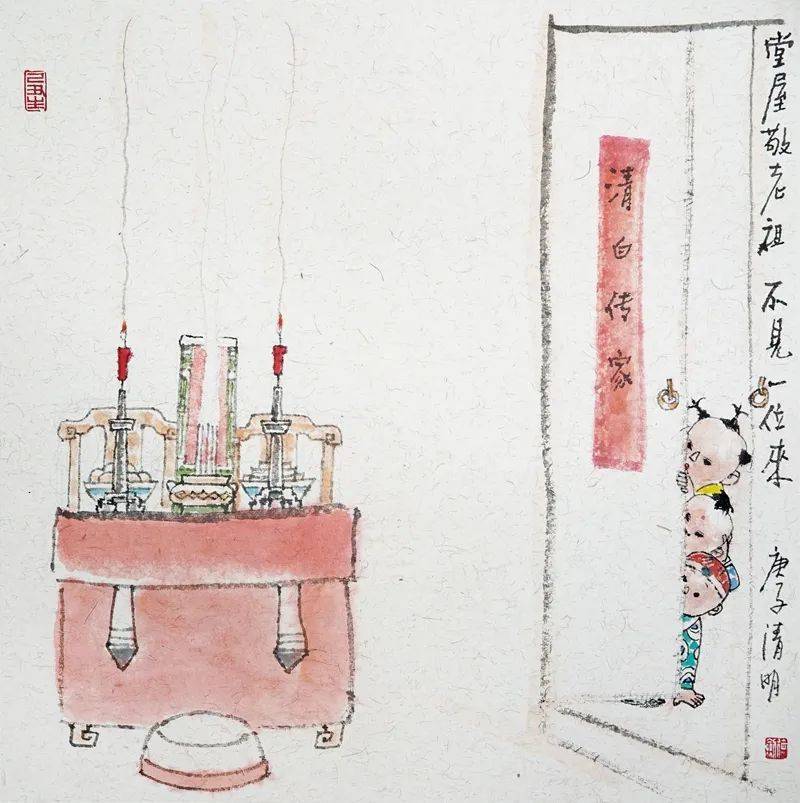 堂屋敬老祖 不見一位來 庚子清明
清白传家